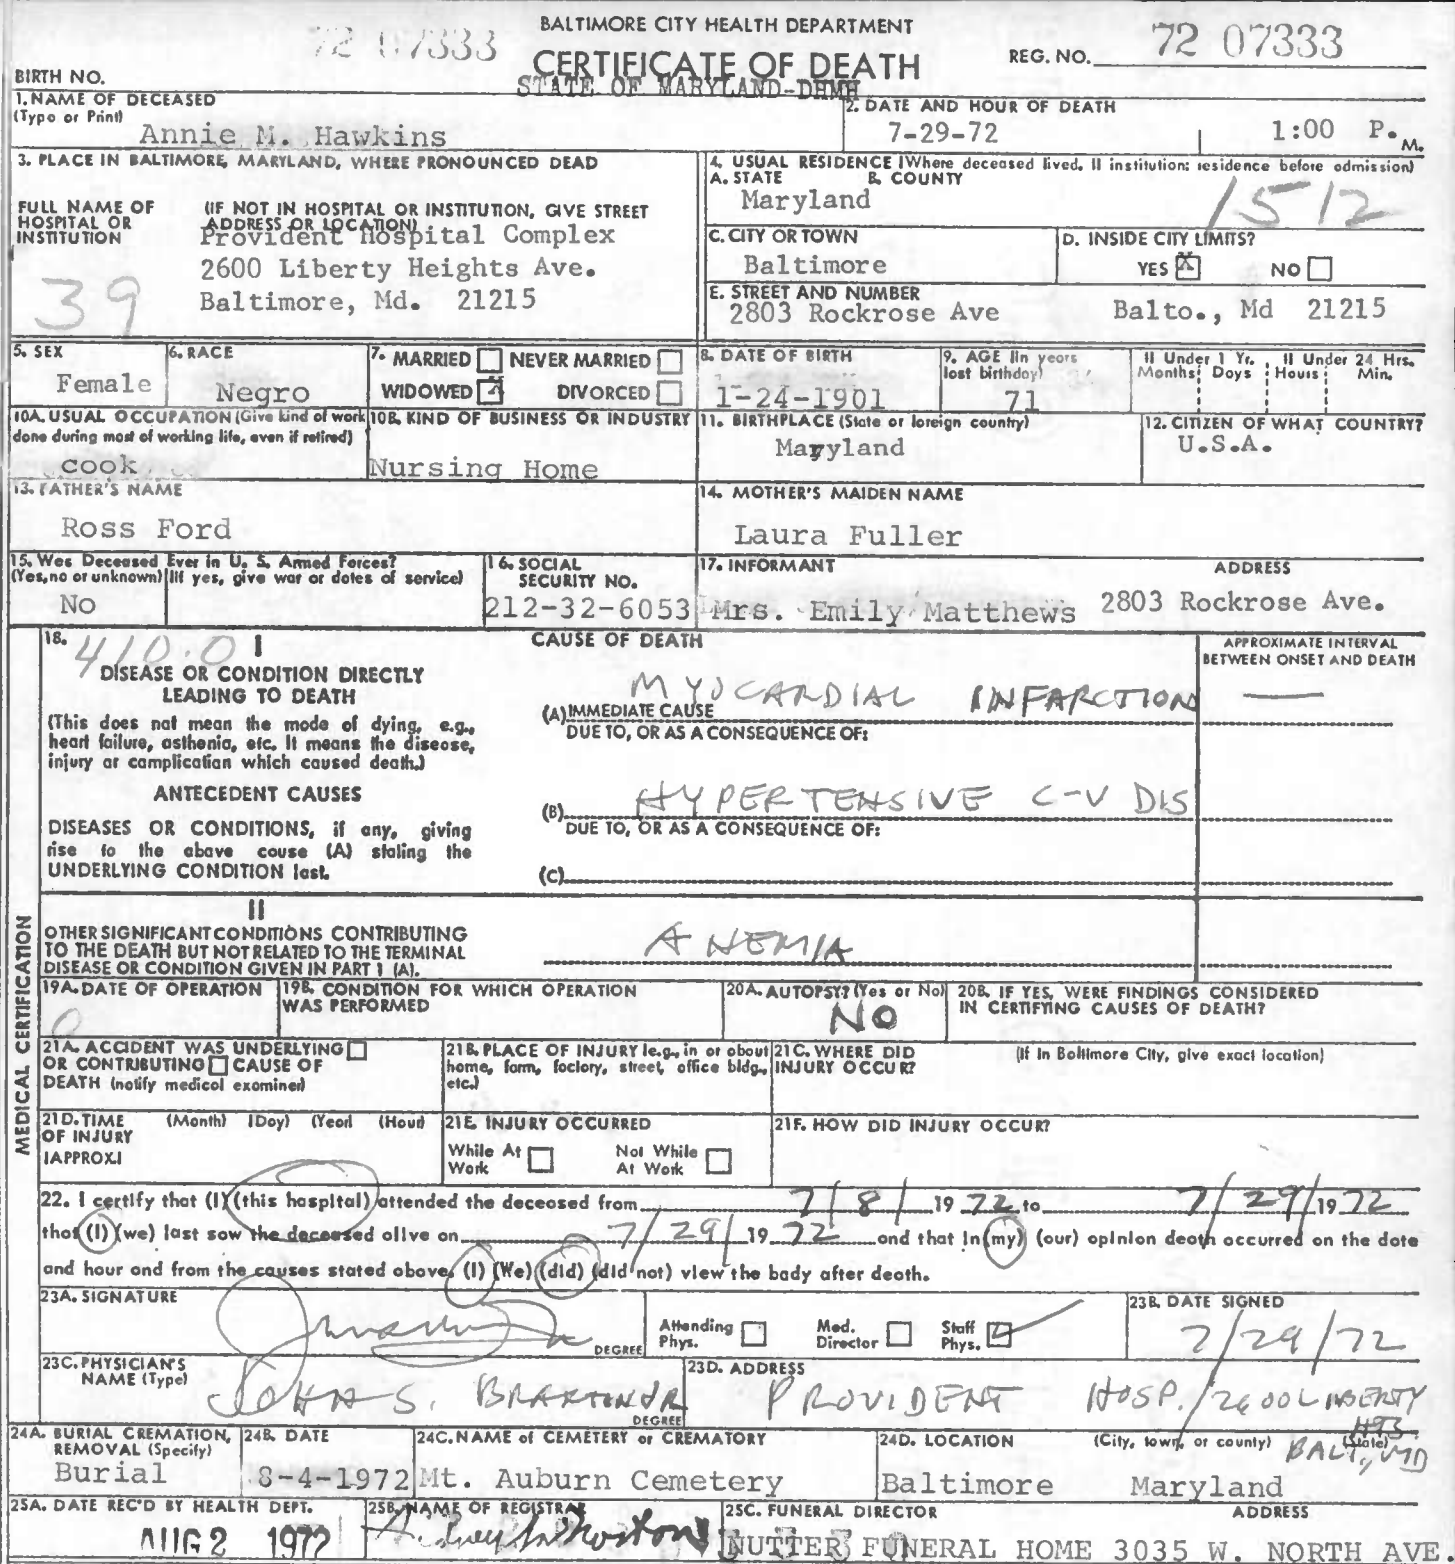 BALTIMORE CITY HEALTH DEPARTMENT
72 07333
CERTIFICATE OF DEATH
STATE OF MARYLAND-DHMH
REG. NO. 72 07333
BIRTH NO.
1. NAME OF DECEASED
(Type or Print)
Annie M. Hawkins
2. DATE AND HOUR OF DEATH
7-29-72 1:00 P. M.
3. PLACE IN BALTIMORE, MARYLAND, WHERE PRONOUNCED DEAD
FULL NAME OF HOSPITAL OR INSTITUTION
(IF NOT IN HOSPITAL OR INSTITUTION, GIVE STREET ADDRESS OR LOCATION)
Provident Hospital Complex
2600 Liberty Heights Ave.
Baltimore, Md. 21215
39
4. USUAL RESIDENCE (Where deceased lived. If institution: residence before admission)
A. STATE B. COUNTY
Maryland
1512
C. CITY OR TOWN
Baltimore
D. INSIDE CITY LIMITS?
YES X NO
E. STREET AND NUMBER
2803 Rockrose Ave Balto., Md 21215
5. SEX
Female
6. RACE
Negro
7. MARRIED NEVER MARRIED
WIDOWED X DIVORCED
8. DATE OF BIRTH
1-24-1901
9. AGE (In years last birthday)
71
If Under 1 Yr. If Under 24 Hrs.
Months Days Hours Min.
10A. USUAL OCCUPATION (Give kind of work done during most of working life, even if retired)
cook
10B. KIND OF BUSINESS OR INDUSTRY
Nursing Home
11. BIRTHPLACE (State or foreign country)
Maryland
12. CITIZEN OF WHAT COUNTRY?
U.S.A.
13. FATHER'S NAME
Ross Ford
14. MOTHER'S MAIDEN NAME
Laura Fuller
15. Was Deceased Ever in U. S. Armed Forces?
(Yes, no or unknown) (If yes, give war or dates of service)
No
16. SOCIAL SECURITY NO.
212-32-6053
17. INFORMANT ADDRESS
Mrs. Emily Matthews 2803 Rockrose Ave.
MEDICAL CERTIFICATION
18. 410.0 I
CAUSE OF DEATH
APPROXIMATE INTERVAL BETWEEN ONSET AND DEATH
DISEASE OR CONDITION DIRECTLY LEADING TO DEATH
(This does not mean the mode of dying, e.g., heart failure, asthenia, etc. It means the disease, injury or complication which caused death.)
MYOCARDIAL INFARCTION —
(A) IMMEDIATE CAUSE
DUE TO, OR AS A CONSEQUENCE OF:
ANTECEDENT CAUSES
DISEASES OR CONDITIONS, if any, giving rise to the above cause (A) stating the UNDERLYING CONDITION last.
(B) HYPERTENSIVE C-V DIS
DUE TO, OR AS A CONSEQUENCE OF:
(C)
II
OTHER SIGNIFICANT CONDITIONS CONTRIBUTING TO THE DEATH BUT NOT RELATED TO THE TERMINAL DISEASE OR CONDITION GIVEN IN PART 1 (A).
ANEMIA
19A. DATE OF OPERATION
0
19B. CONDITION FOR WHICH OPERATION WAS PERFORMED
20A. AUTOPSY? (Yes or No)
NO
20B. IF YES, WERE FINDINGS CONSIDERED IN CERTIFYING CAUSES OF DEATH?
21A. ACCIDENT WAS UNDERLYING OR CONTRIBUTING CAUSE OF DEATH (notify medical examiner)
21B. PLACE OF INJURY (e.g., in or about home, farm, factory, street, office bldg., etc.)
21C. WHERE DID INJURY OCCUR? (If in Baltimore City, give exact location)
21D. TIME OF INJURY (APPROX.) (Month) (Day) (Year) (Hour)
21E. INJURY OCCURRED
While At Work Not While At Work
21F. HOW DID INJURY OCCUR?
22. I certify that (I) (this hospital) attended the deceased from 7/8/1972 to 7/29/1972
that (I) (we) last saw the deceased alive on 7/29/1972 and that in (my) (our) opinion death occurred on the date
and hour and from the causes stated above. (I) (We) (did) (did not) view the body after death.
23A. SIGNATURE
DEGREE
Attending Phys. Med. Director Staff Phys.
23B. DATE SIGNED
7/29/72
23C. PHYSICIAN'S NAME (Type)
JOHN S.
DEGREE
23D. ADDRESS
PROVIDENT HOSP. / 2600 LIBERTY HTS BALT, MD
24A. BURIAL CREMATION, REMOVAL (Specify)
Burial
24B. DATE
8-4-1972
24C. NAME of CEMETERY or CREMATORY
Mt. Auburn Cemetery
24D. LOCATION (City, town, or county) (State)
Baltimore Maryland
25A. DATE REC'D BY HEALTH DEPT.
AUG 2 1972
25B. NAME OF REGISTRAR
25C. FUNERAL DIRECTOR ADDRESS
NUTTER FUNERAL HOME 3035 W. NORTH AVE